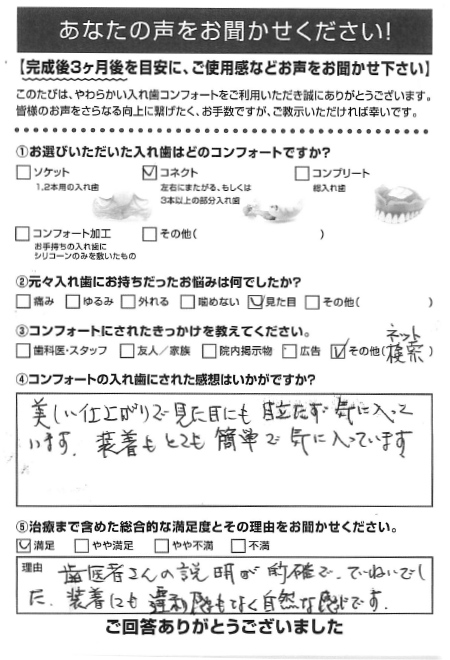 あなたの声をお聞かせください!
【完成後3ヶ月後を目安に、ご使用感などお声をお聞かせ下さい】
このたびは、やわらかい入れ歯コンフォートをご利用いただき誠にありがとうございます。
皆様のお声をさらなる向上に繋げたく、お手数ですが、ご教示いただければ幸いです。
①お選びいただいた入れ歯はどのコンフォートですか?
ソケット
1,2本用の入れ歯
コネクト
左右にまたがる、もしくは
3本以上の部分入れ歯
コンプリート
総入れ歯
コンフォート加工
お手持ちの入れ歯に
シリコーンのみを敷いたもの
その他( )
②元々入れ歯にお持ちだったお悩みは何でしたか?
痛み ゆるみ 外れる 噛めない 見た目 その他( )
③コンフォートにされたきっかけを教えてください。
歯科医・スタッフ 友人/家族 院内掲示物 広告 その他(ネット検索)
④コンフォートの入れ歯にされた感想はいかがですか?
美しい仕上がりで見た目にも目立たず気に入って
います。装着もとても簡単で気に入っています
⑤治療まで含めた総合的な満足度とその理由をお聞かせください。
満足 やや満足 やや不満 不満
理由 歯医者さんの説明が的確で、ていねいでし
た、装着にも違和感もなく自然な感じです。
ご回答ありがとうございました